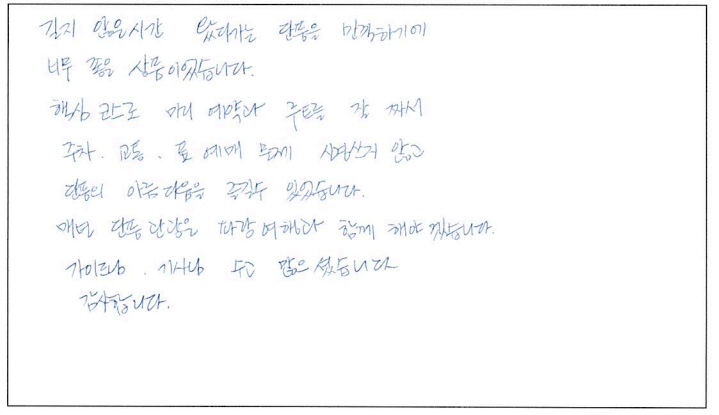 길지 않은 시간 왔다가는 단풍을 만끽하기에
너무 좋은 상품이었습니다.
핵심 코스로 미리 예약과 루트를 잘 짜서
주차. 교통. 표 예매 문제 신경쓰지 않고
단풍의 아름다움을 즐길수 있었습니다.
매년 단풍관광은 파랑여행과 함께 해야겠습니다.
가이드님. 기사님 수고 많으셨습니다
감사합니다.